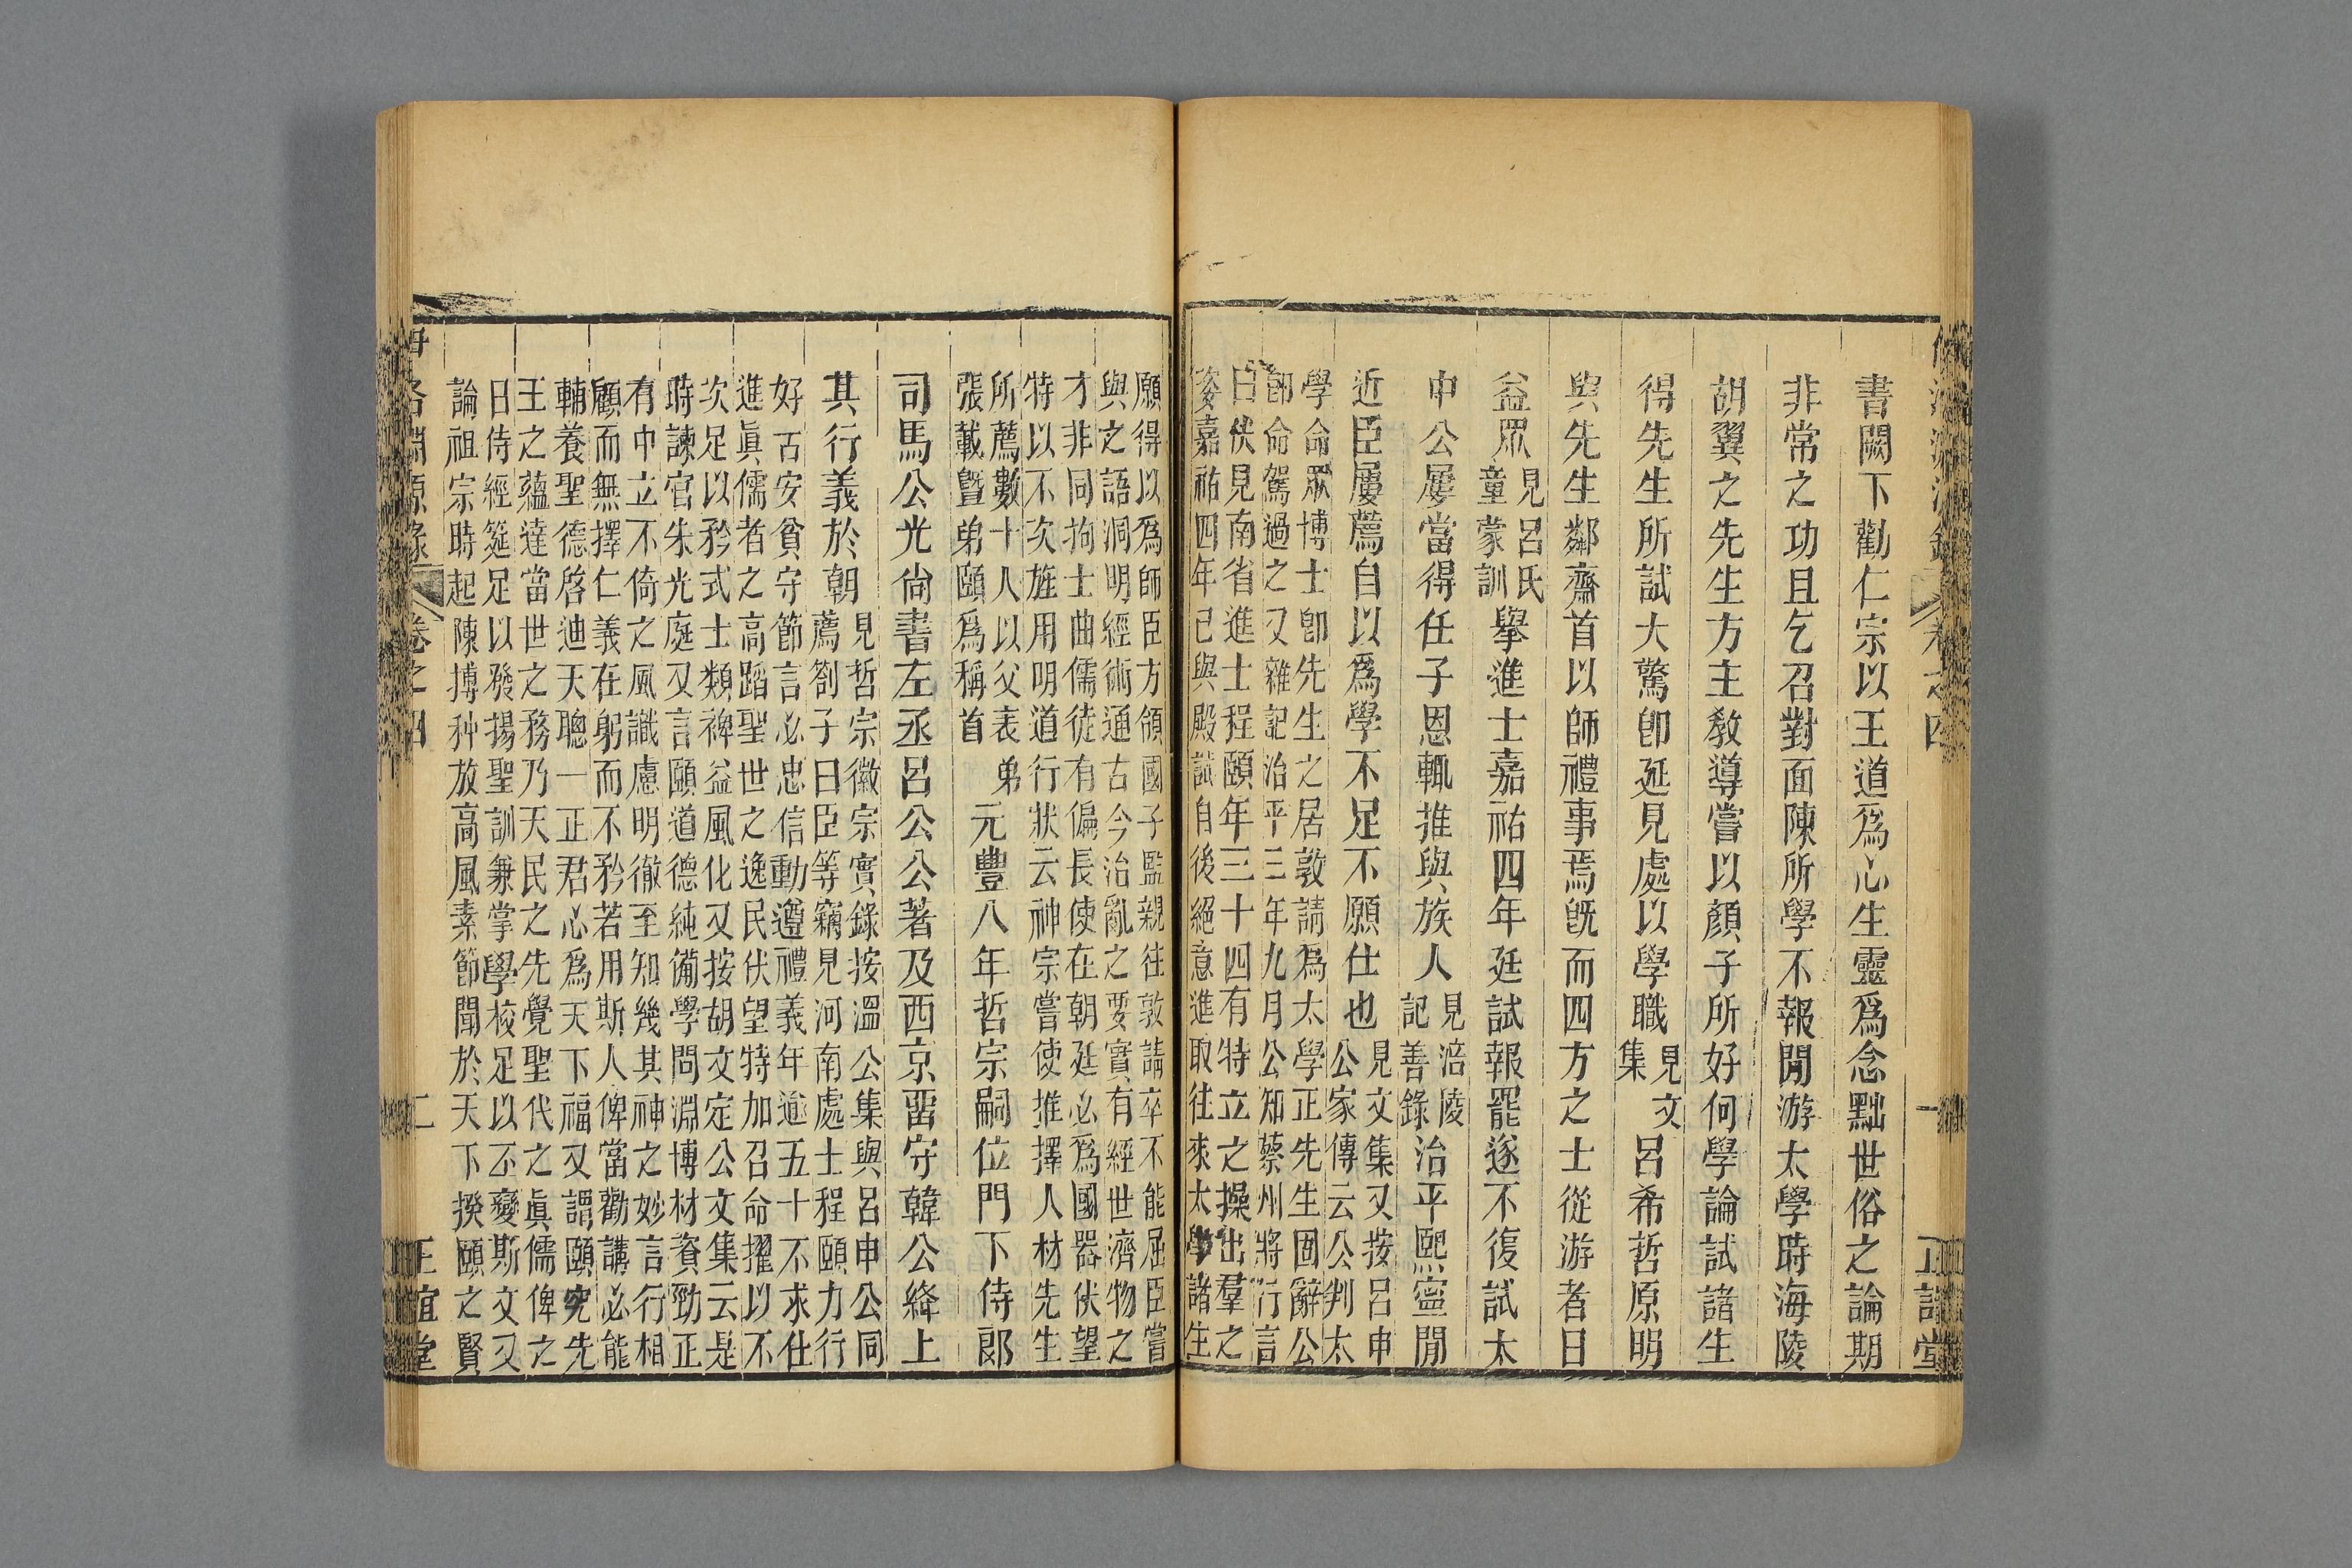 書闕下勸仁宗以王道爲心生靈爲念黜世俗之論期
非常之功且乞召對面陳所學不報閒游太學時海陵
胡翼之先生方主敎導嘗以顏子所好何學論試諸生
得先生所試大驚卽延見處以學職
見文
集
呂希哲原明
與先生鄰齋首以師禮事焉旣而四方之士從游者日
益眾
見呂氏
童蒙訓
舉進士嘉祐四年廷試報罷遂不復試太
中公屢當得任子恩輒推與族人
見涪陵
記善錄
治平熙寧閒
近臣屢薦自以爲學不足不願仕也
見文集又按呂申
公家傳云公判太
學命眾博士卽先生之居敦請爲太學正先生固辭公
卽命駕過之又雜記治平三年九月公知蔡州將行言
曰伏見南省進士程頤年三十四有特立之操出羣之
姿嘉祐四年已與殿試自後絕意進取往來太學諸生
願得以爲師臣方領國子監親往敦請卒不能屈臣嘗
與之語洞明經術通古今治亂之要實有經世濟物之
才非同拘士曲儒徒有偏長使在朝廷必爲國器伏望
特以不次旌用明道行狀云神宗嘗使推擇人材先生
所薦數十人以父表弟
張載曁弟頤爲稱首
元豐八年哲宗嗣位門下侍郞
司馬公光尙書左丞呂公公著及西京畱守韓公絳上
其行義於朝
見哲宗徽宗實錄按溫公集與呂申公同
薦劄子曰臣等竊見河南處士程頤力行
好古安貧守節言必忠信動遵禮義年逾五十不求仕
進眞儒者之高蹈聖世之逸民伏望特加召命擢以不
次足以矜式士類裨益風化又按胡文定公文集云是
時諫官朱光庭又言頤道德純備學問淵博材資勁正
有中立不倚之風識慮明徹至知幾其神之妙言行相
顧而無擇仁義在躬而不矜若用斯人俾當勸講必能
輔養聖德啓迪天聰一正君心爲天下福又謂頤究先
王之蘊達當世之務乃天民之先覺聖代之眞儒俾之
日侍經筵足以發揚聖訓兼掌學校足以丕變斯文又
論祖宗時起陳摶种放高風素節聞於天下揆頤之賢
卷之四
二
正誼堂